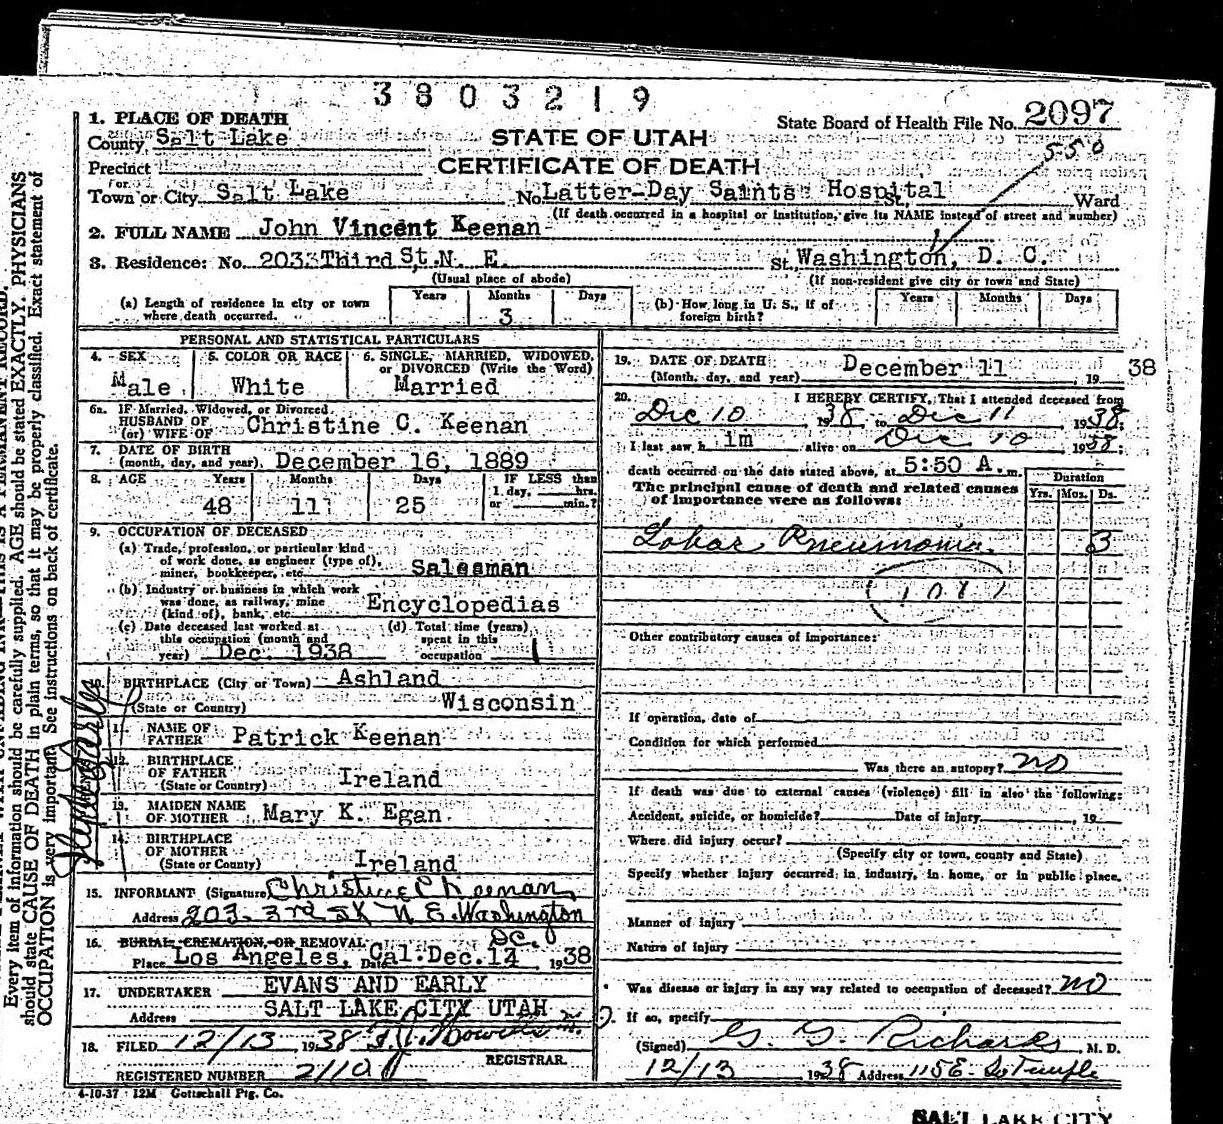 3803219
1. PLACE OF DEATH
State Board of Health File No. 2097
County Salt Lake
STATE OF UTAH
550
Precinct
CERTIFICATE OF DEATH
Town or City Salt Lake No. Latter-Day Saints Hospital St. Ward
(If death occurred in a hospital or institution, give its NAME instead of street and number)
2. FULL NAME John Vincent Keenan
3. Residence: No. 203 Third St. N. E. St. Washington, D. C.
(Usual place of abode) (If non-resident give city or town and State)
(a) Length of residence in city or town where death occurred. Years Months 3 Days
(b) How long in U. S., if of foreign birth? Years Months Days
PERSONAL AND STATISTICAL PARTICULARS
4. SEX Male
5. COLOR OR RACE White
6. SINGLE, MARRIED, WIDOWED, or DIVORCED (Write the Word) Married
6a. If Married, Widowed, or Divorced
HUSBAND OF
(or) WIFE OF Christine C. Keenan
7. DATE OF BIRTH
(month, day, and year) December 16, 1889
8. AGE Years 48 Months 11 Days 25 IF LESS than
1 day, hrs.
or min.?
9. OCCUPATION OF DECEASED
(a) Trade, profession, or particular kind
of work done, as engineer (type of),
miner, bookkeeper, etc. Salesman
(b) Industry or business in which work
was done, as railway, mine
(kind of), bank, etc. Encyclopedias
(c) Date deceased last worked at
this occupation (month and
year) Dec. 1938
(d) Total time (years)
spent in this
occupation 1
10. BIRTHPLACE (City or Town) Ashland
(State or Country) Wisconsin
11. NAME OF
FATHER Patrick Keenan
12. BIRTHPLACE
OF FATHER
(State or Country) Ireland
13. MAIDEN NAME
OF MOTHER Mary K. Egan
14. BIRTHPLACE
OF MOTHER
(State or County) Ireland
15. INFORMANT (Signature) Christine C Keenan
Address 203 3rd St N E. Washington
D.C.
16. BURIAL, CREMATION, OR REMOVAL
Place Los Angeles, Cal. Date Dec. 14 1938
17. UNDERTAKER EVANS AND EARLY
Address SALT LAKE CITY UTAH
18. FILED 12/13 1938
REGISTRAR.
REGISTERED NUMBER
4-10-37 12M Gottschall Ptg. Co.
19. DATE OF DEATH
(Month, day, and year) December 11, 1938
20. I HEREBY CERTIFY, That I attended deceased from
Dec 10 1938 to Dec 11 1938;
I last saw him alive on Dec 10 1938;
death occurred on the date stated above, at 5:50 A. m.
The principal cause of death and related causes
of importance were as follows:
Duration
Yrs. Mos. Ds.
Lobar Pneumonia 3
Other contributory causes of importance:
If operation, date of
Condition for which performed
Was there an autopsy? no
If death was due to external causes (violence) fill in also the following:
Accident, suicide, or homicide? Date of injury , 19
Where did injury occur?
(Specify city or town, county and State)
Specify whether injury occurred in industry, in home, or in public place.
Manner of injury
Nature of injury
Was disease or injury in any way related to occupation of deceased? no
If so, specify
(Signed) G. G. Richards, M. D.
12/13 1938 Address 115 E. So Temple
SALT LAKE CITY
Every item of information should be carefully supplied. AGE should be stated EXACTLY. PHYSICIANS
should state CAUSE OF DEATH in plain terms, so that it may be properly classified. Exact statement of
OCCUPATION is very important. See instructions on back of certificate.